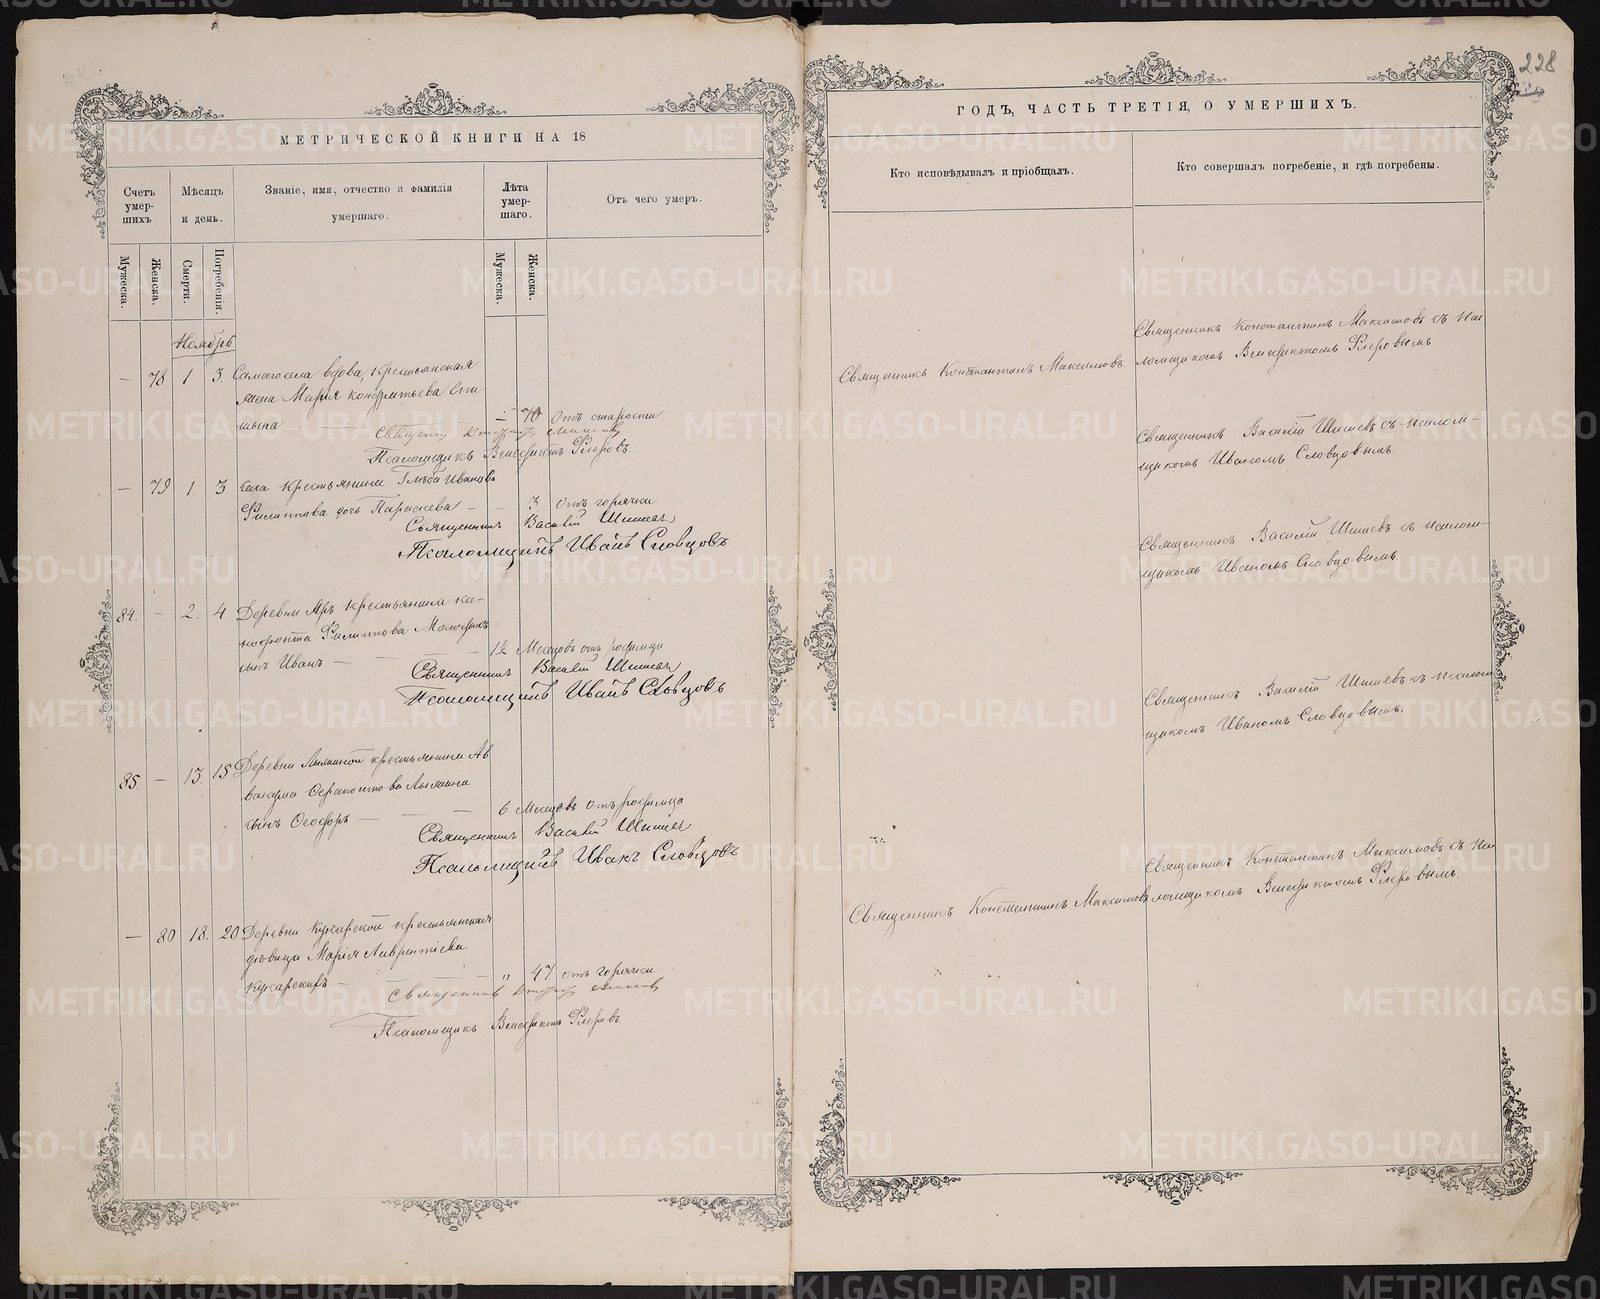 МЕТРИЧЕСКОЙ КНИГИ НА 18
Счетъ умер-шихъ
Мѣсяцъ и день.
Званіе, имя, отчество и фамилія умершаго.
Лѣта умер-шаго.
Отъ чего умеръ.
Мужеска.
Женска.
Смерти.
Погребенія.
Мужеска.
Женска.
Ноябрь
— 78 1 3. Самаго села вдова, крестьянская
жена Марія Кондратьева
— 70 Отъ старости
Псаломщикъ Венедиктъ Флеровъ.
— 79 1. 3 Села крестьянина Глѣба Иванова
Филиппова дочь Параскева — — 3 Отъ горячки
Священникъ Василій Шишевъ
Псаломщикъ Иванъ Словцовъ
84. — 2. 4. Деревни Яръ крестьянина
Филиппова
сынъ Иванъ — — — 1½ Месяцовъ отъ родимца
Священникъ Василій Шишевъ
Псаломщикъ Иванъ Словцовъ
85. — 13. 15 Деревни крестьянина Ав
вакума
сынъ Ѳеодоръ — — 6 Месяцовъ отъ родимца
Священникъ Василій Шишевъ
Псаломщикъ Иванъ Словцовъ
— 80 18. 20 Деревни Кукарской крестьянская
дѣвица Марія Лаврентіева
Кукарскихъ — " 47 отъ горячки
Псаломщикъ Венедиктъ Флеровъ.
228
ГОДЪ, ЧАСТЬ ТРЕТІЯ, О УМЕРШИХЪ.
Кто исповѣдывалъ и пріобщалъ.
Кто совершалъ погребеніе, и гдѣ погребены.
Священникъ Константинъ Максимовъ.
Священникъ Константинъ Максимовъ съ Пса
ломщикомъ Венедиктомъ Флеровымъ
Священникъ Василій Шишевъ съ псалом-
щикомъ Иваномъ Словцовымъ.
Священникъ Василій Шишевъ съ псалом-
щикомъ Иваномъ Словцовымъ.
Священникъ Василій Шишевъ съ псалом
щикомъ Иваномъ Словцовымъ.
Священникъ Константинъ Максимовъ
Священникъ Константинъ Максимовъ съ Пса
ломщикомъ Венедиктомъ Флеровымъ.
METRIKI.GASO-URAL.RU